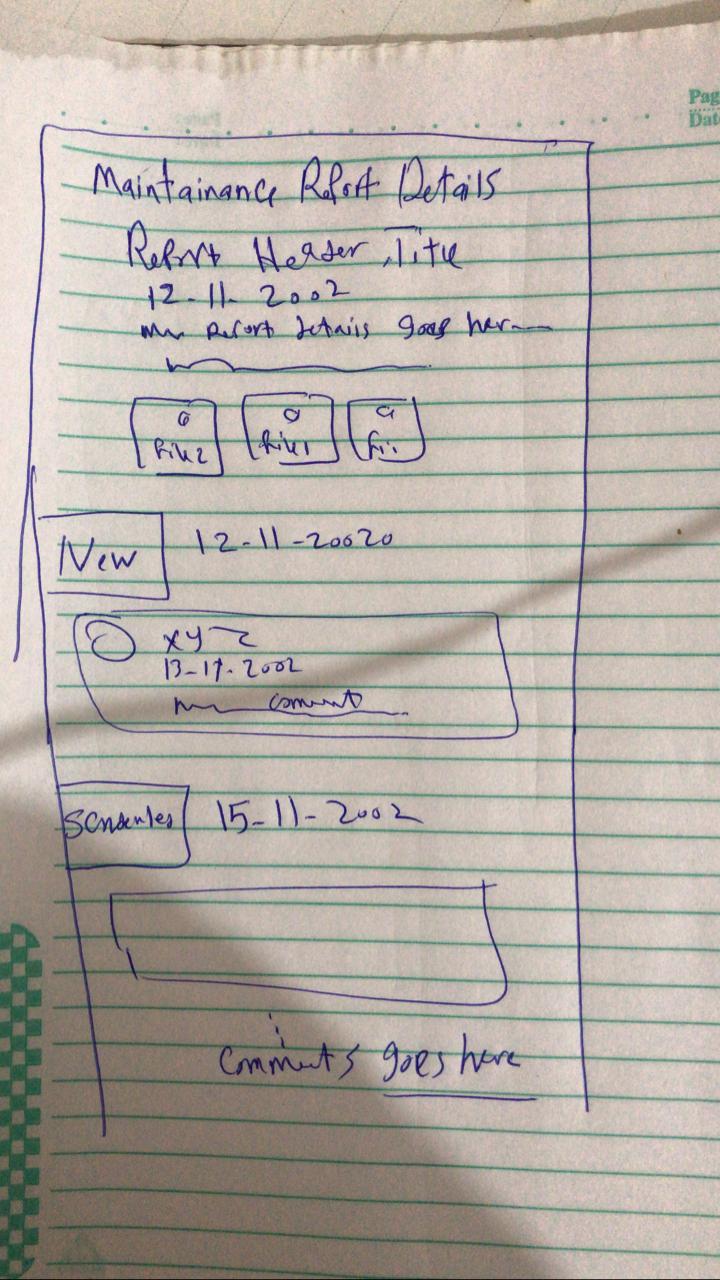 Pag
Date
Maintainance Report Details
Report Header Title
12-11-2002
Report details goes her
File2
File1
Fi
New
12-11-20020
xyz
coment
15-11-2002
Comments goes here